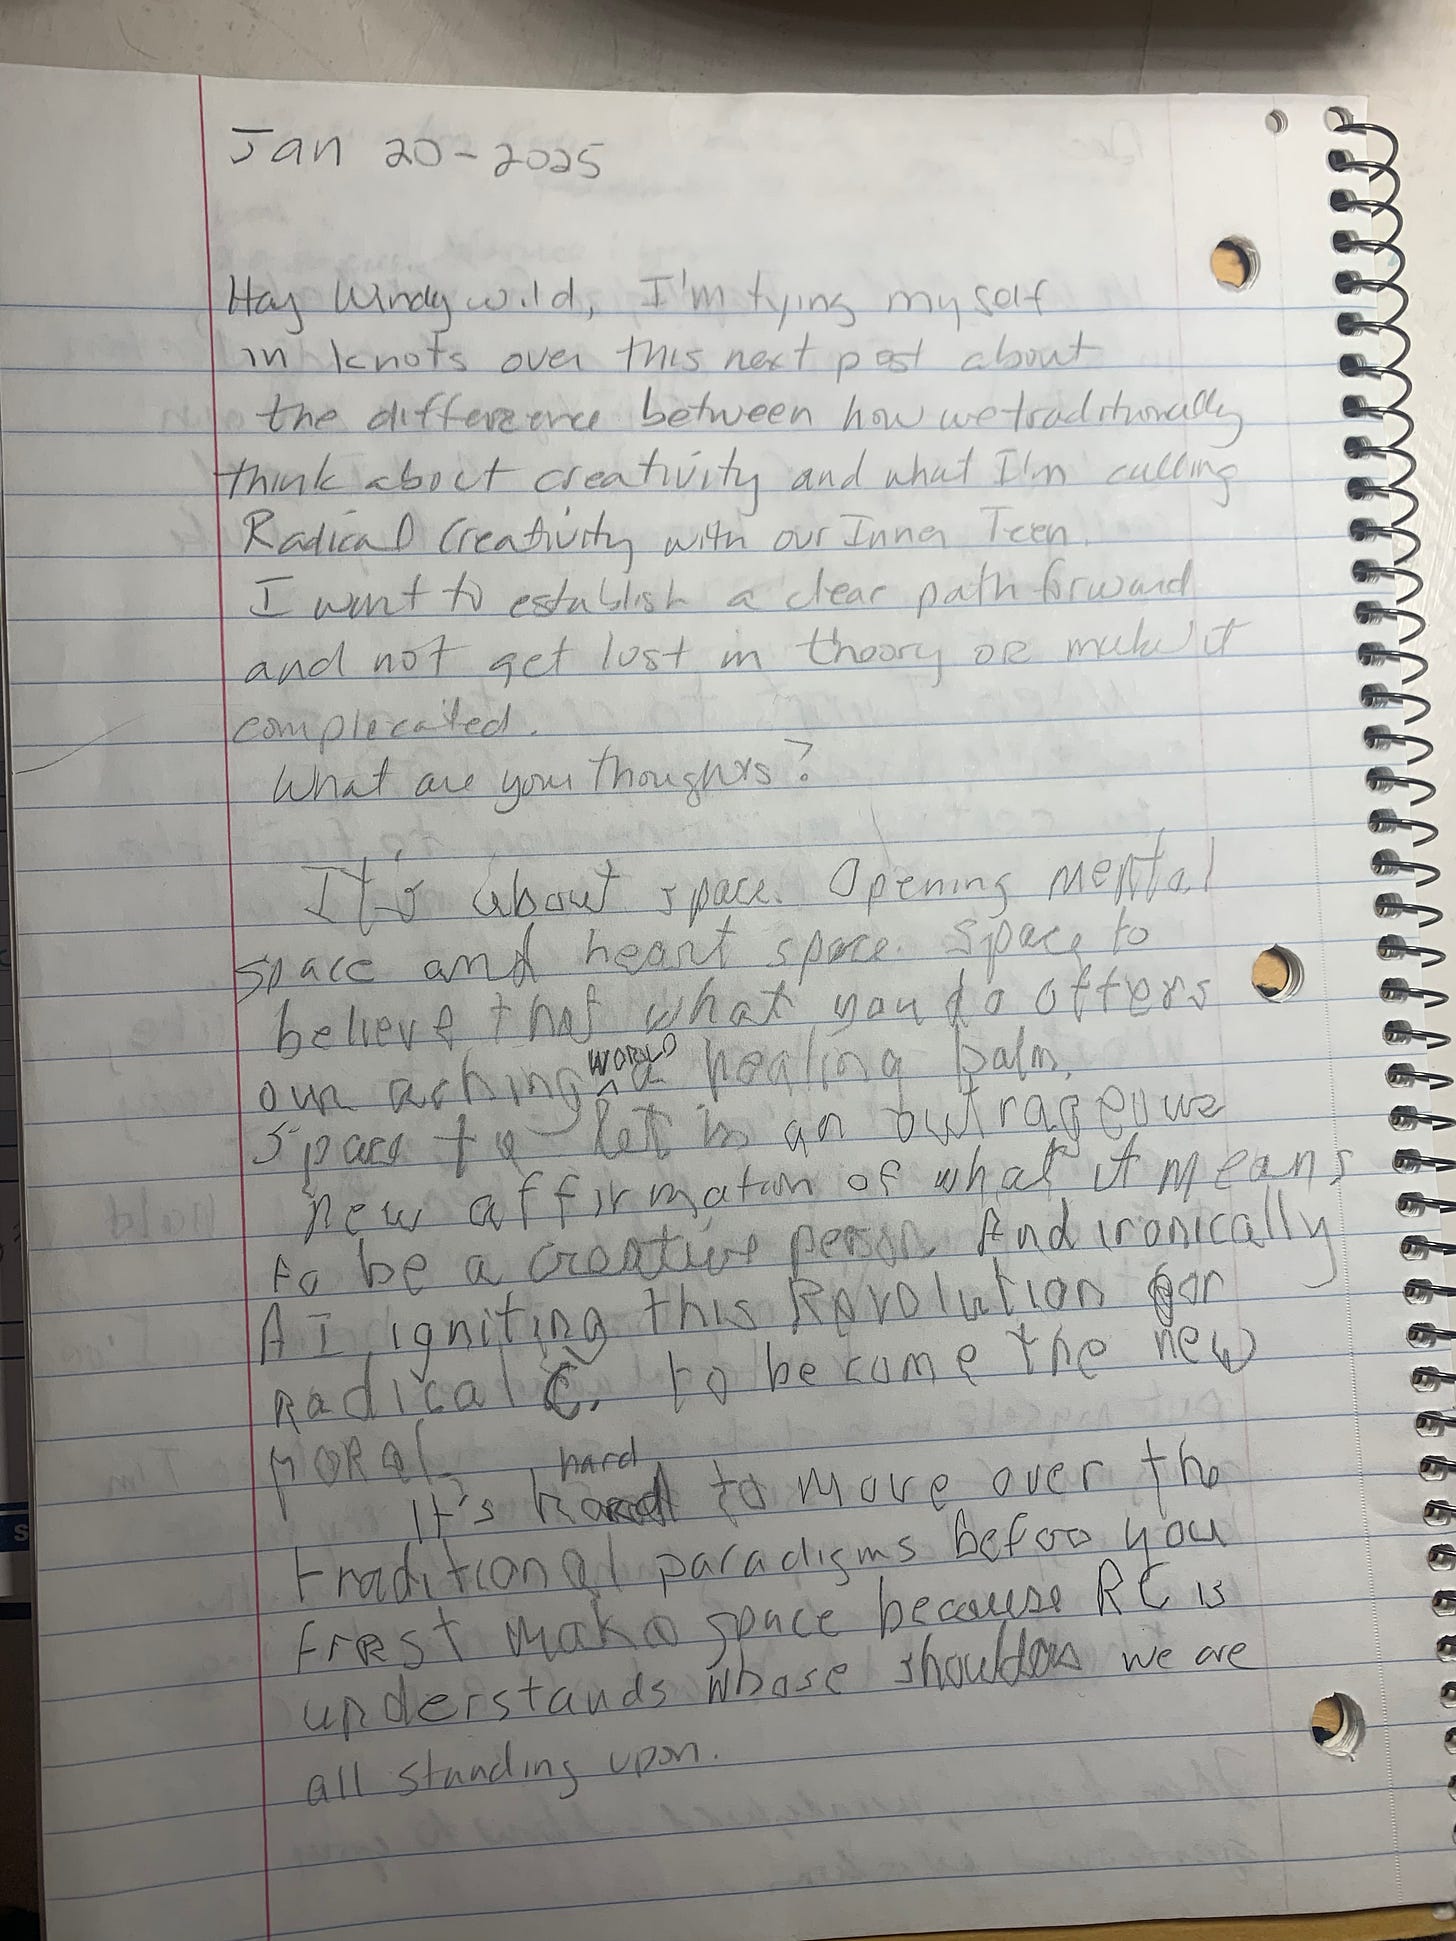 Jan 20-2025
Hay Windywild, I'm tying myself
in knots over this next post about
the difference between how we traditionally
think about creativity and what I'm calling
Radical Creativity with our Inner Teen.
I want to establish a clear path forward
and not get lost in theory OR make it
complecated.
What are your thoughts?
It's about space. Opening mental
space and heart space. Space to
believe that what you do offers
our aching WORLD a healing balm.
Space to let in an outrageous
new affirmation of what it means
to be a creative person. And ironically
AI igniting this Revolution for
Radical C. to become the new
MORal.
It's hard to move over the
traditional paradigms befoo you
frest make space because RC is
understands whose shoulders we are
all standing upon.